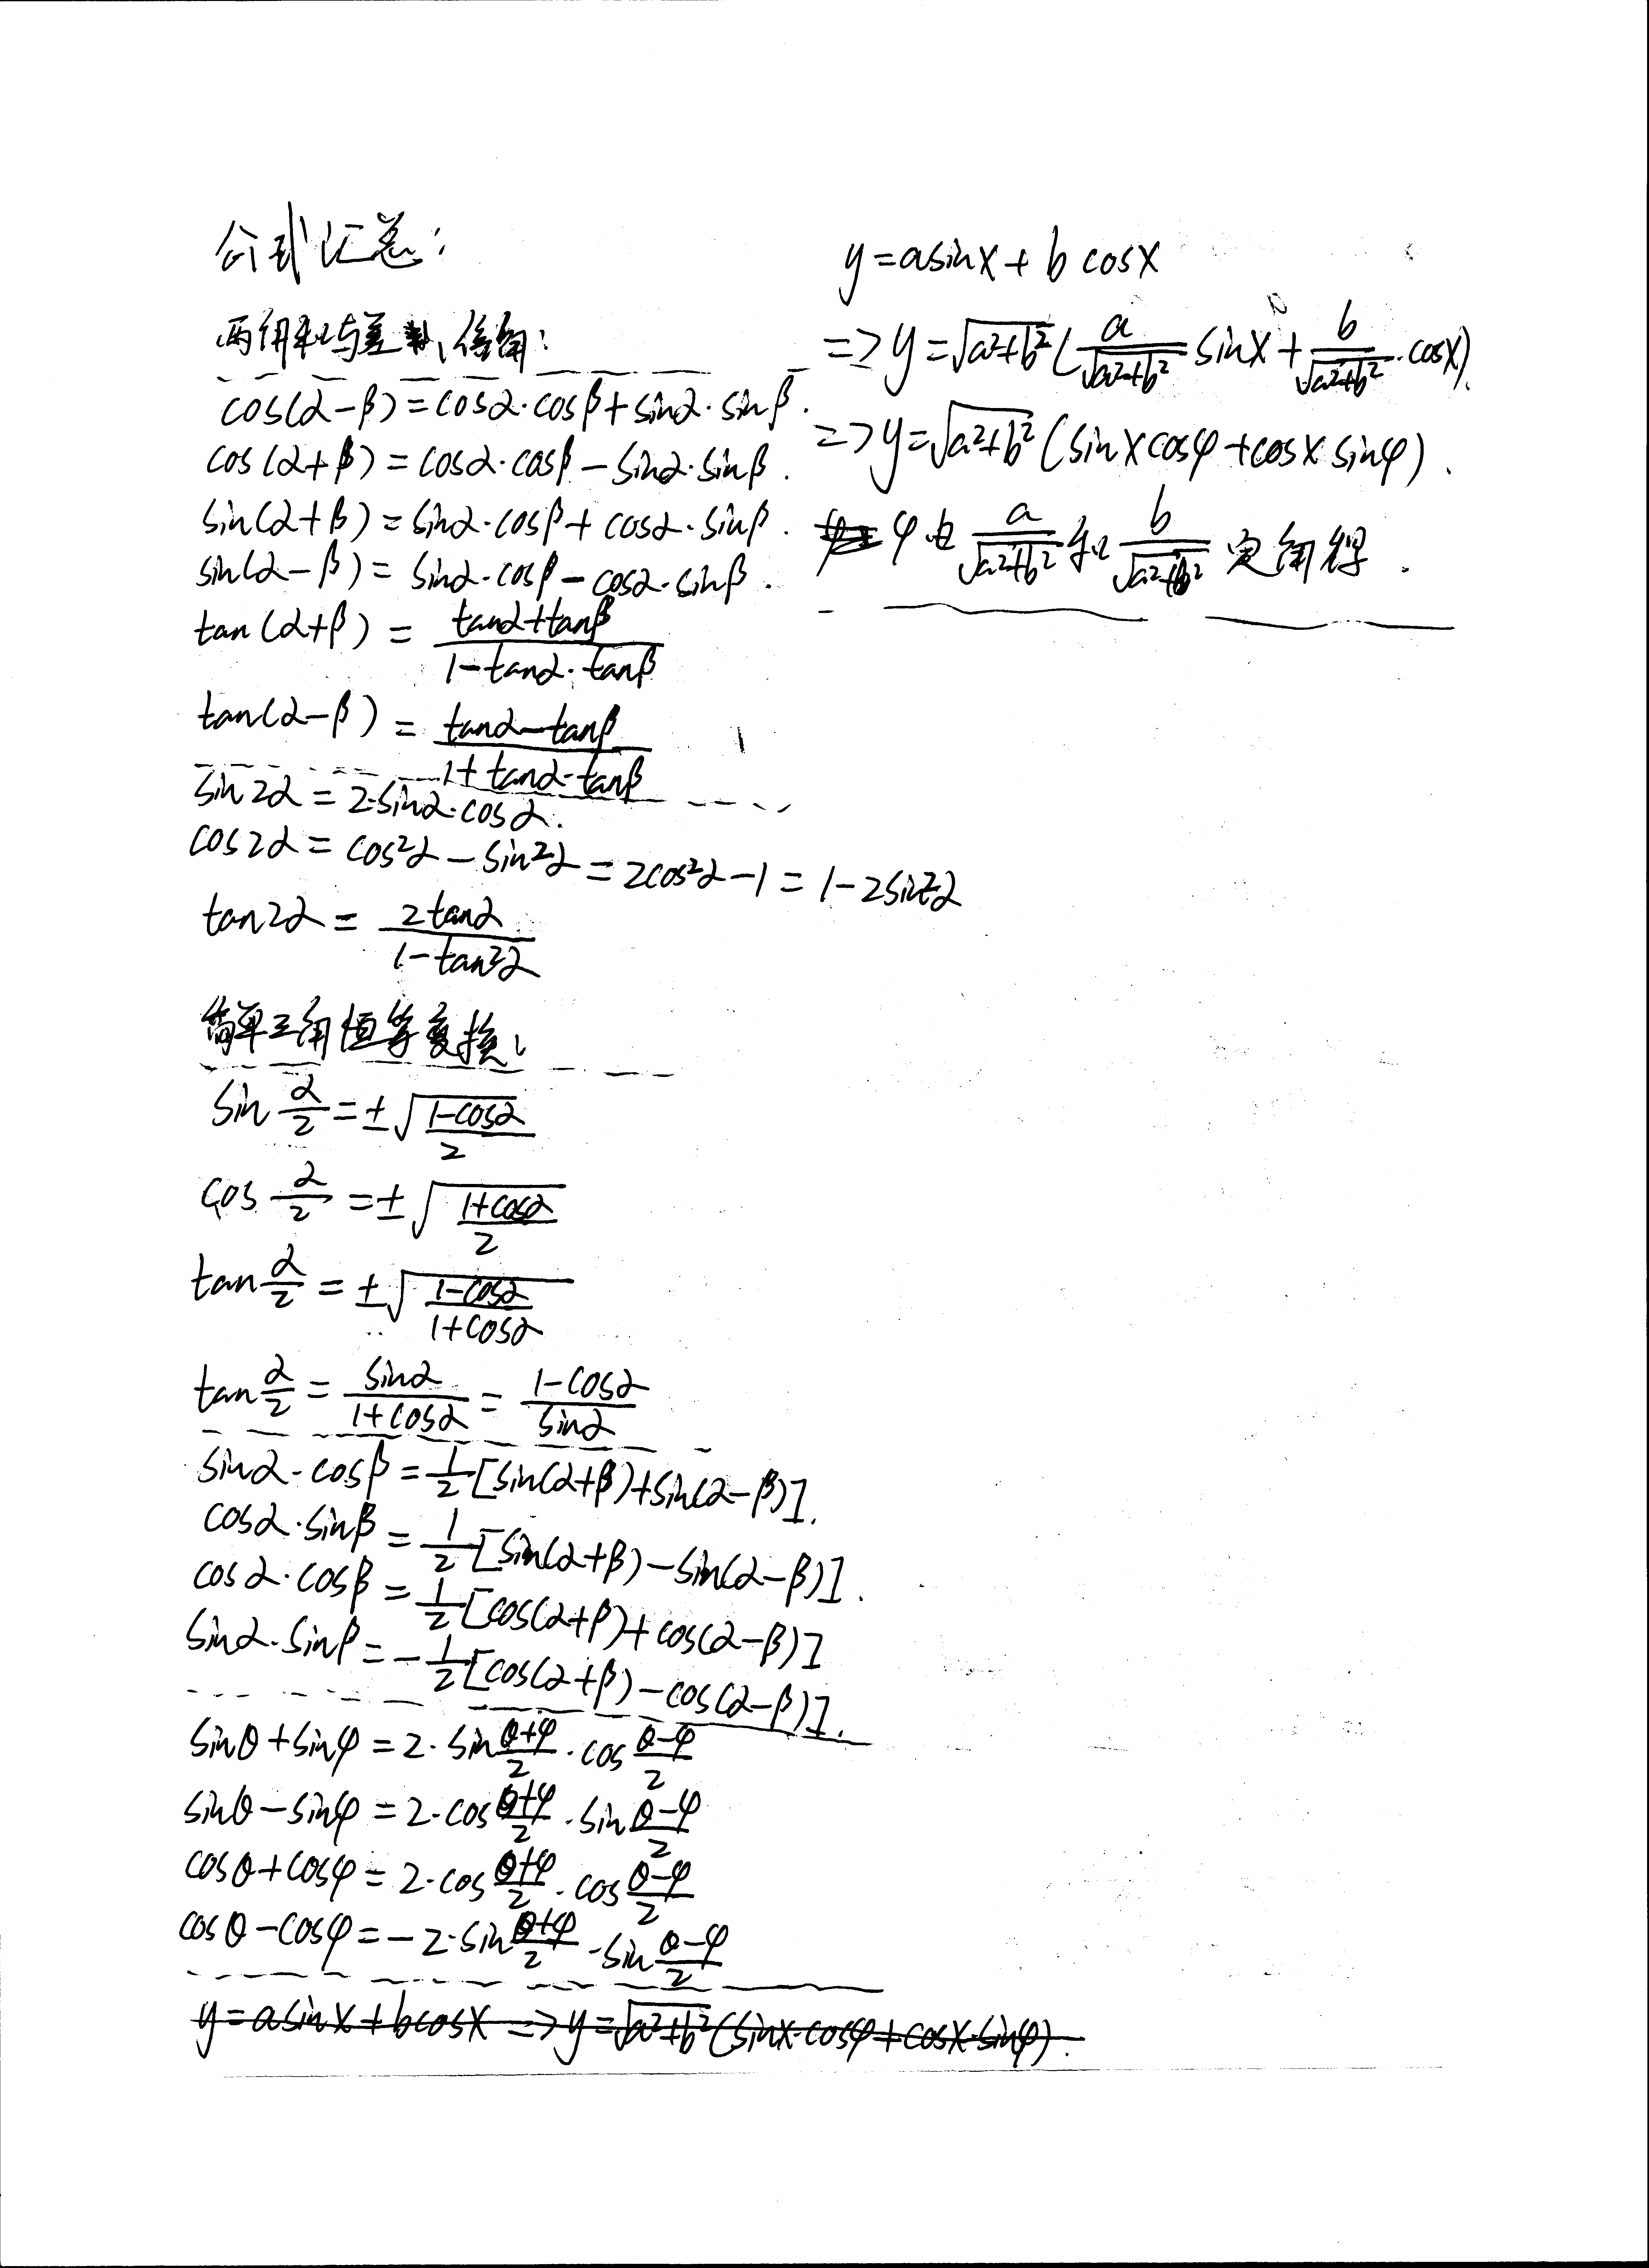 公式汇总:
两角和与差、倍角:
cos(α-β)=cosα·cosβ+sinα·sinβ.
cos(α+β)=cosα·cosβ-sinα·sinβ.
sin(α+β)=sinα·cosβ+cosα·sinβ.
sin(α-β)=sinα·cosβ-cosα·sinβ.
tan(α+β)=\frac{tanα+tanβ}{1-tanα·tanβ}
tan(α-β)=\frac{tanα-tanβ}{1+tanα·tanβ}
sin2α=2·sinα·cosα.
cos2α=cos²α-sin²α=2cos²α-1=1-2sin²α
tan2α=\frac{2tanα}{1-tan²α}
简单三角恒等变换:
sin\frac{α}{2}=±\sqrt{\frac{1-cosα}{2}}
cos\frac{α}{2}=±\sqrt{\frac{1+cosα}{2}}
tan\frac{α}{2}=±\sqrt{\frac{1-cosα}{1+cosα}}
tan\frac{α}{2}=\frac{sinα}{1+cosα}=\frac{1-cosα}{sinα}
sinα·cosβ=\frac{1}{2}[sin(α+β)+sin(α-β)].
cosα·sinβ=\frac{1}{2}[sin(α+β)-sin(α-β)].
cosα·cosβ=\frac{1}{2}[cos(α+β)+cos(α-β)]
sinα·sinβ=-\frac{1}{2}[cos(α+β)-cos(α-β)].
sinθ+sinφ=2·sin\frac{θ+φ}{2}·cos\frac{θ-φ}{2}
sinθ-sinφ=2·cos\frac{θ+φ}{2}·sin\frac{θ-φ}{2}
cosθ+cosφ=2·cos\frac{θ+φ}{2}·cos\frac{θ-φ}{2}
cosθ-cosφ=-2·sin\frac{θ+φ}{2}·sin\frac{θ-φ}{2}
y=asinx+bcosx=>y=\sqrt{a²+b²}(sinx·cosφ+cosx·sinφ).
y=asinx+bcosx
=>y=\sqrt{a²+b²}(\frac{a}{\sqrt{a²+b²}}sinx+\frac{b}{\sqrt{a²+b²}}·cosx).
=>y=\sqrt{a²+b²}(sinxcosφ+cosxsinφ).
φ由\frac{a}{\sqrt{a²+b²}}和\frac{b}{\sqrt{a²+b²}}定角得.